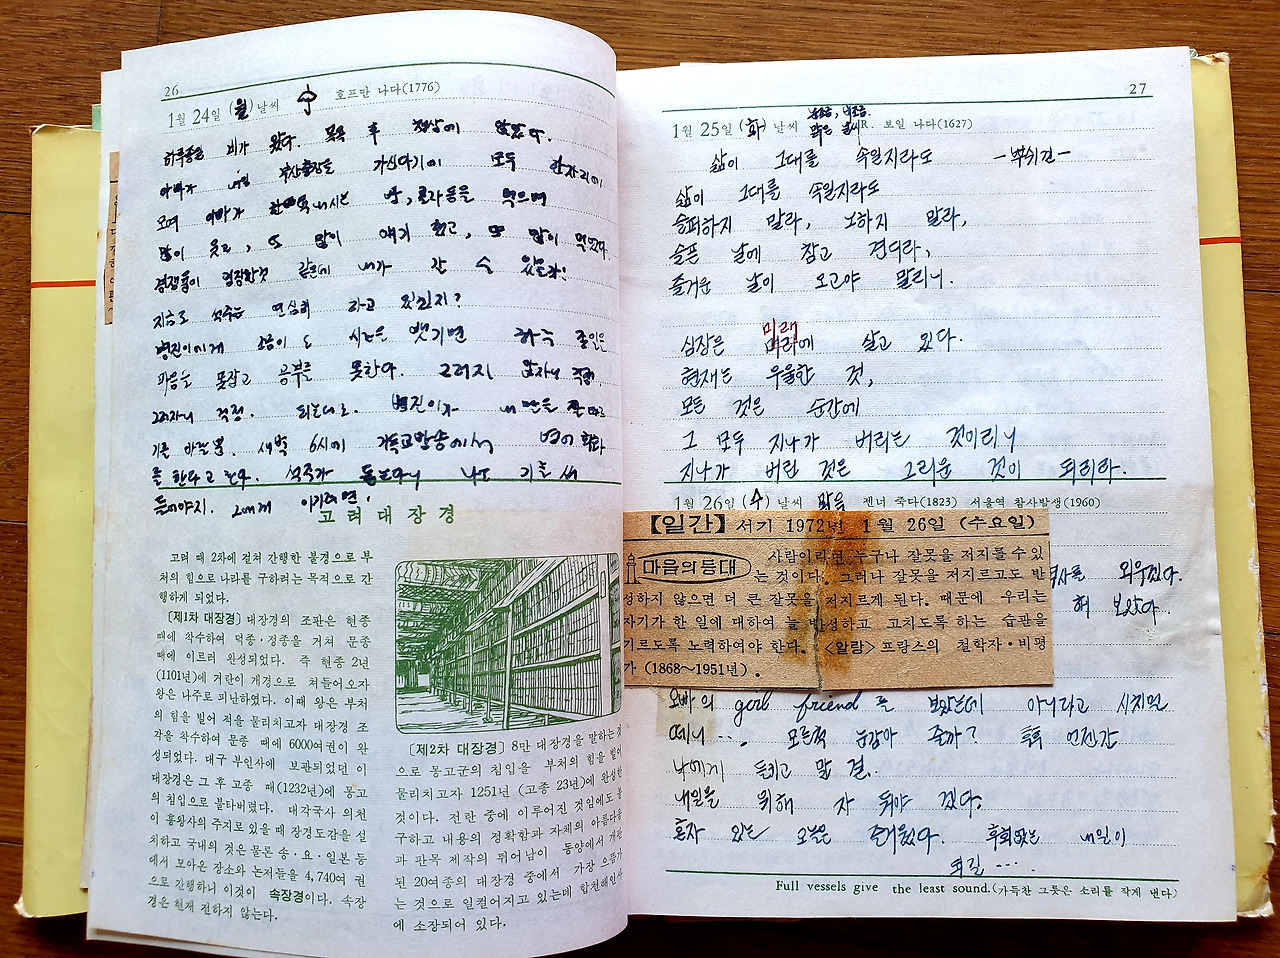 26
1월 24일 (월) 날씨 호프만 나다(1776)
하루종일 비가 왔다. 목욕 후 책상에 앉았다.
아빠가 내일 부산출장을 가신다기에 모두 한자리에
모여 아빠가 한턱내시는 빵, 과자등을 먹으며
많이 웃고, 또 많이 얘기 했고, 또 많이 먹었다.
경쟁률이 굉장할것 같은데 내가 갈 수 있을까!
지금도 석주는 열심히 하고 있겠지?
병진이에게 조금이 도 시간을 뺏기면 하루 종일은
마음을 못잡고 공부를 못한다. 그러지 않자니 걱정
그러자니 걱정. 되는대로. 병진이가 내 만을
기를 바랄 뿐. 새벽 6시에 기독교방송에서 영어 회화
를 한다고 한다. 석주가 듣는다니 나도 기를 써
들어야지. 그에게 이기려면!
고려대장경
고려 때 2차에 걸쳐 간행한 불경으로 부
처의 힘으로 나라를 구하려는 목적으로 간
행하게 되었다.
[제1차 대장경] 대장경의 조판은 현종
때에 착수하여 덕종·정종을 거쳐 문종
때에 이르러 완성되었다. 즉 현종 2년
(1101년)에 거란이 개경으로 쳐들어오자
왕은 나주로 피난하였다. 이때 왕은 부처
의 힘을 빌어 적을 물리치고자 대장경 조
각을 착수하여 문종 때에 6000여권이 완
성되었다. 대구 부인사에 보관되었던 이
대장경은 그 후 고종 때(1232년)에 몽고
의 침입으로 불타버렸다. 대각국사 의천
이 흥왕사의 주지로 있을 때 장경도감을 설
치하고 국내의 것은 물론 송·요·일본 등
에서 모아온 장소와 논저들을 4,740여 권
으로 간행하니 이것이 속장경이다. 속장
경은 현재 전하지 않는다.
[제2차 대장경] 8만 대장경을 말하는것
으로 몽고군의 침입을 부처의 힘을 빌어
물리치고자 1251년 (고종 23년)에 완성한
것이다. 전란 중에 이루어진 것임에도 불
구하고 내용의 정확함과 자체의 아름다움
과 판목 제작의 뛰어남이 동양에서 개판
된 20여종의 대장경 중에서 가장 으뜸가
는 것으로 일컬어지고 있는데 합천해인사
에 소장되어 있다.
27
1월 25일 (화) 날씨 맑은 날씨 R. 보일 나다(1627)
삶이 그대를 속일지라도 -뿌쉬킨-
삶이 그대를 속일지라도
슬퍼하지 말라, 노하지 말라,
슬픈 날에 참고 견뎌라,
즐거운 날이 오고야 말리니.
심장은 미래에 살고 있다.
현재는 우울한 것,
모든 것은 순간에
그 모두 지나가 버리는 것이리니
지나가 버린 것은 그리운 것이 되리라.
1월 26일 (수) 날씨 맑음 젠너 죽다(1823) 서울역 참사발생(1960)
【일간】 서기 1972년 1월 26일 (수요일)
마음의등대
사람이라면 누구나 잘못을 저지를수있
는 것이다. 그러나 잘못을 저지르고도 반
성하지 않으면 더 큰 잘못을 저지르게 된다. 때문에 우리는
자기가 한 일에 대하여 늘 반성하고 고치도록 하는 습관을
기르도록 노력하여야 한다. <알랑> 프랑스의 철학자·비평
가 (1868~1951년).
외우겠다.
해 보았다.
오빠의 girl friend 를 보았는데 아니라고 시치미
떼니 ... 모른척 눈감아 줄까? 툭 언젠간
나에게 들키고 말 걸.
내일을 위해 자 둬야 겠다.
혼자 있는 오늘은 즐거웠다. 후회없는 내일이
되길 ...
Full vessels give the least sound.(가득찬 그릇은 소리를 작게 낸다)